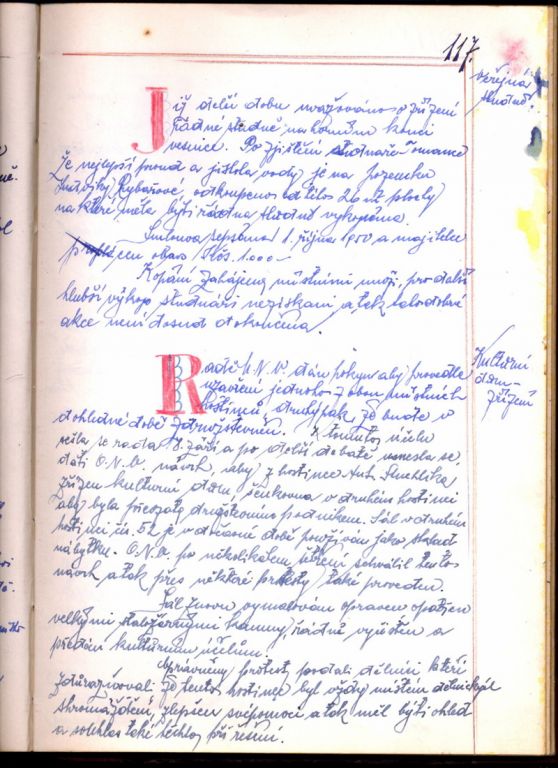 117.
veřejná
studně.
Již delší dobu uvažováno o zřízení
řádné studně na horním konci
vesnice. Po zjištění studnaře
že nejlepší proud a jistota vody je na pozemku
Rybářové, odkoupeno od této 20 m² plochy
na které měla býti řádná studně vykopána.
Smlouva sepsána 1. října 1950 a majitelce
obcí Kčs. 1.000.-
Kopání zahájeno místními muži, pro další
hlubší výkop studnáři nezískáni a tak tato dobrá
akce není dosud dokončena.
Kulturní
dům-
zřízení
Radě M.N.V. dán pokyn aby provedla
uzavření jednoho z obou místních
hostinců, druhý pak že bude v
dohledné době združstevněn. K tomuto účelu
sešla se rada 8. září a po delší debatě usnesla se
dáti O.N.V. návrh, aby z hostince Ant.
zřízen kulturní dům, šenkovna v druhém hostinci
aby byla převzata družstevním podnikem. Sál v druhém
hostinci čís. 52 je v dočasné době používán jako sklad
nábytku. O.N.V. po několikerém šetření schválil tento
návrh a tak přes některé protesty také proveden.
Sál znovu vymalován opraven opatřen
velkými kamny, řádně vyčištěn a
předán kulturním účelům.
Oprávněný protest podali dělníci kteří
zdůrazňovali že tento hostinec byl vždy místem dělnických
shromáždění, zlepšen svépomocí a tak měl býti ohled
a souhlas také těchto při řešení.